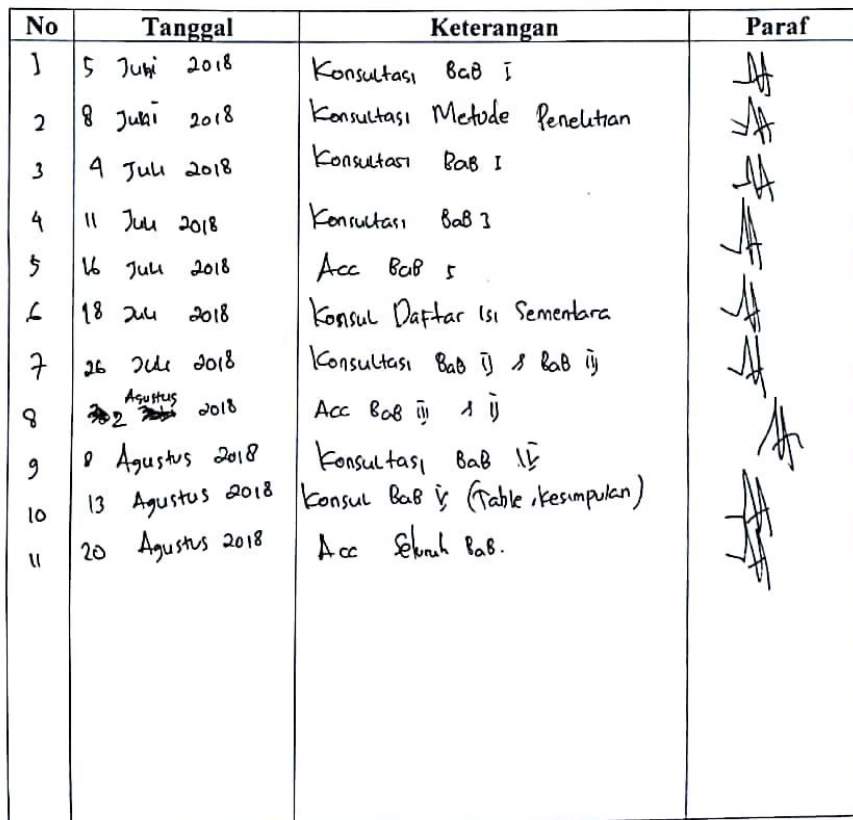 No Tanggal Keterangan Paraf
1 5 Juni 2018 Konsultasi BaB I
2 8 Juni 2018 Konsultasi Metode Penelitian
3 4 Juli 2018 Konsultasi BaB I
4 11 Juli 2018 Konsultasi BaB 3
5 16 Juli 2018 Acc BaB
6 18 Juli 2018 Konsul Daftar Isi Sementara
7 26 Juli 2018 Konsultasi BaB ij & BaB iij
8 2 Agustus 2018 Acc BaB iij & ij
9 8 Agustus 2018 Konsultasi BaB IV
10 13 Agustus 2018 Konsul BaB V (Table, Kesimpulan)
11 20 Agustus 2018 Acc Seluruh BaB.